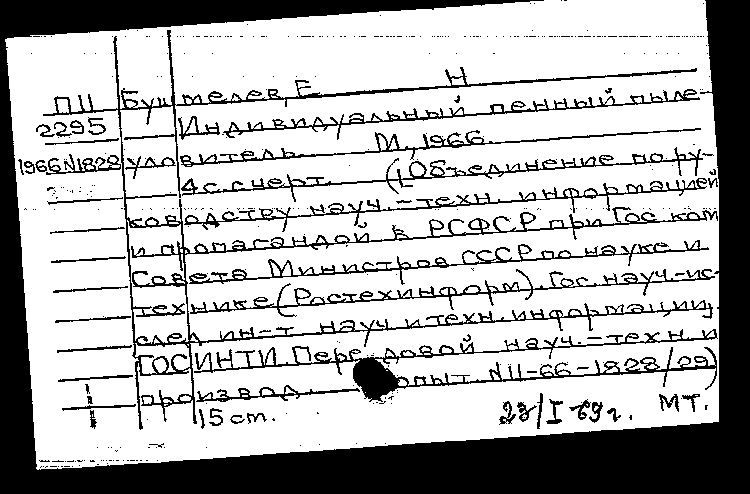 П11 Буштелев, Е Н
2295 Индивидуальный пенный пыле-
1966N1828 уловитель. М., 1966.
4 с. с черт. (Объединение по ру-
ководству науч.-техн. информацией
и пропагандой в РСФСР при Гос ком
Совета Министров СССР по науке и
технике (Ростехинформ). Гос. науч.-ис-
след ин-т науч и техн. информации.
ГОСИНТИ. Передовой науч.-техн. и
производ. опыт. N11-66-1828/09)
15 cm. 23/I 69 г. МТ.